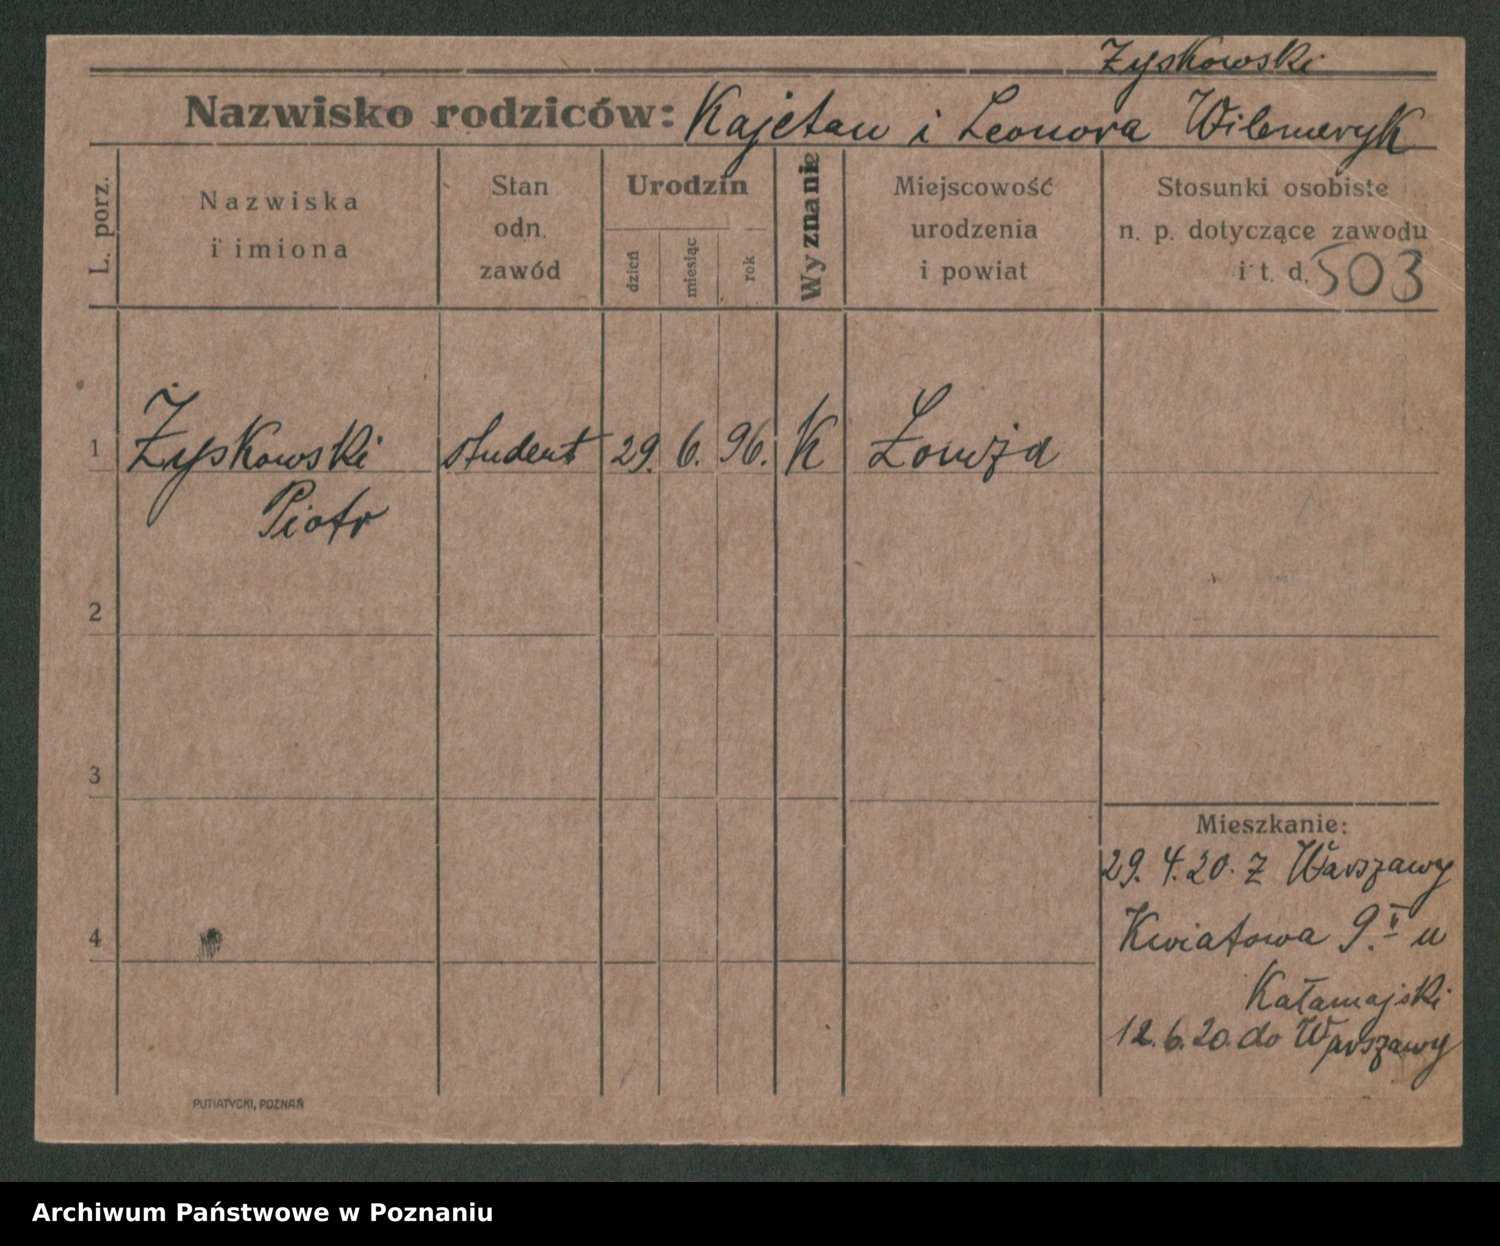 Żyskowski
Nazwisko rodziców: Kajetan i Leonora Wilemeryk
L. porz.
Nazwiska
i imiona
Stan
odn.
zawód
Urodzin
dzień
miesiąc
rok
Wyznanie
Miejscowość
urodzenia
i powiat
Stosunki osobiste
n. p. dotyczące zawodu
i t. d. 503
1 Żyskowski student 29. 6. 96. K Łomża
Piotr
2
3
4
Mieszkanie:
29. 4. 20. z Warszawy
Kwiatowa 9. II u
Kałamajski
12. 6. 20. do Warszawy
PUTIATYCKI, POZNAŃ
Archiwum Państwowe w Poznaniu